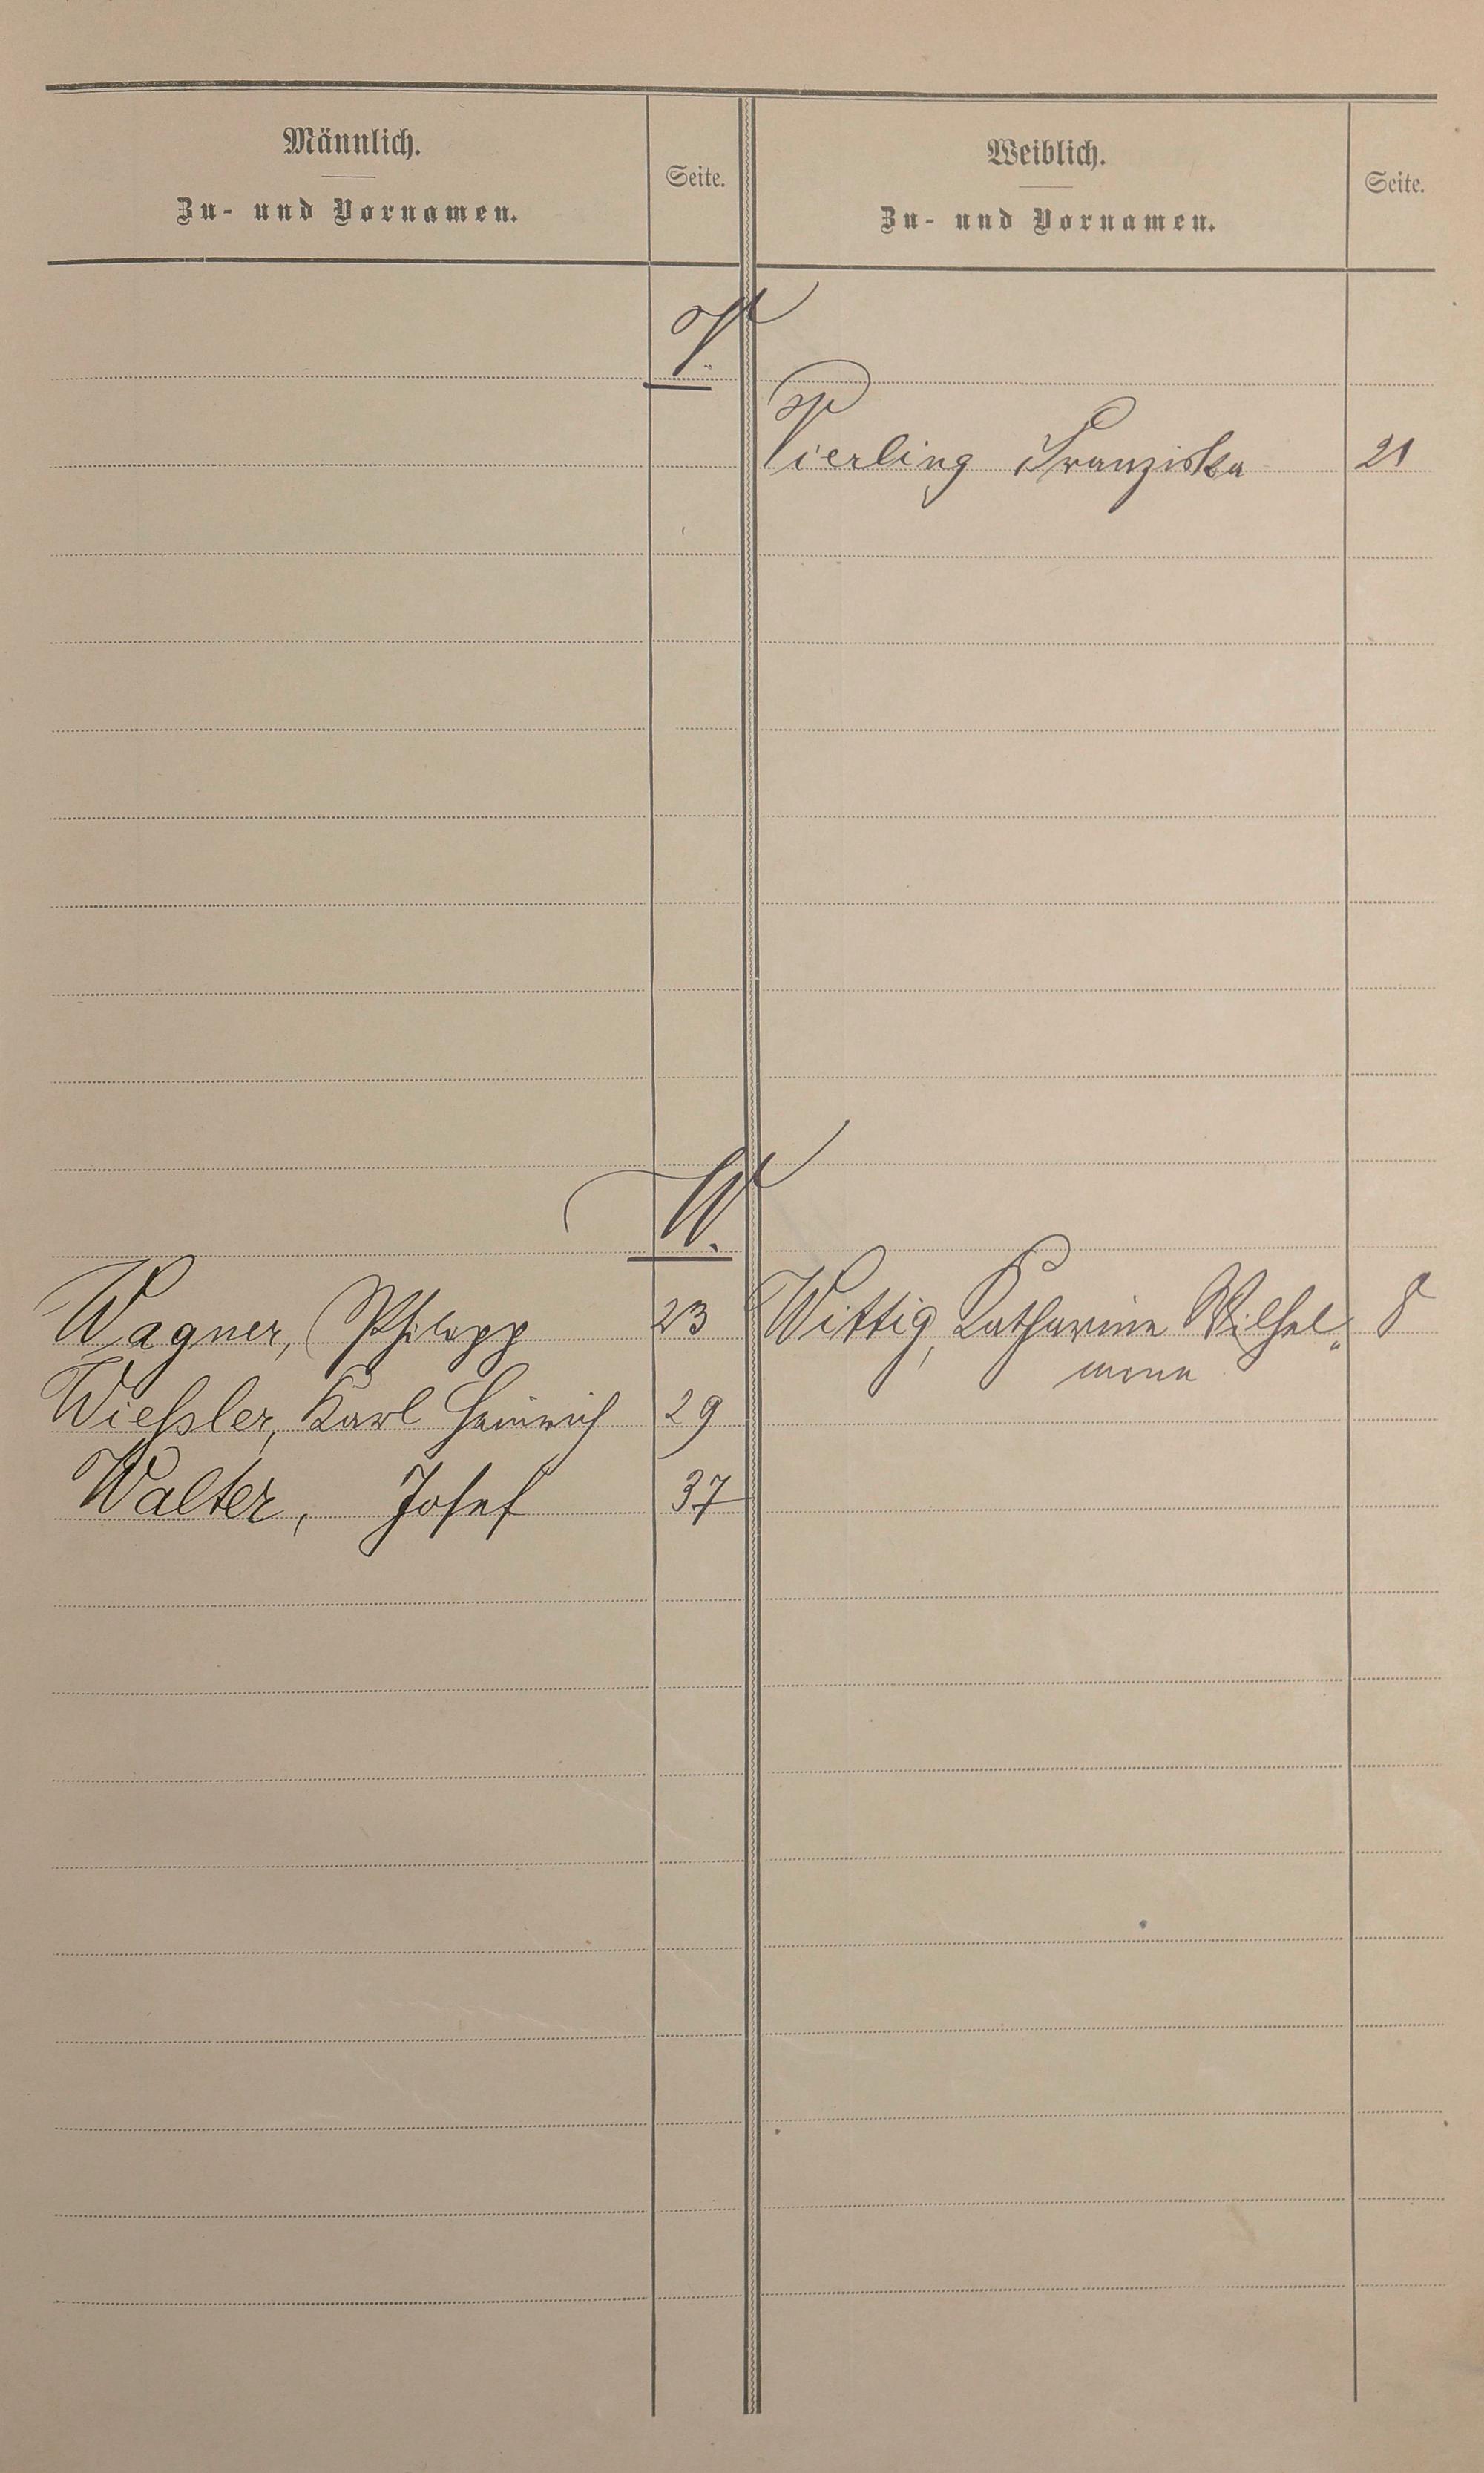 Männlich.
Zu- und Vornamen.
Seite.
Weiblich.
Zu- und Vornamen.
Seite.
V.
Vierling Franziska 21
W.
Wagner, Philipp 23
Wittig, Katharina Wilhel„ 8
mena
Wießler, Karl Heinrich 29
Walter, Josef 37